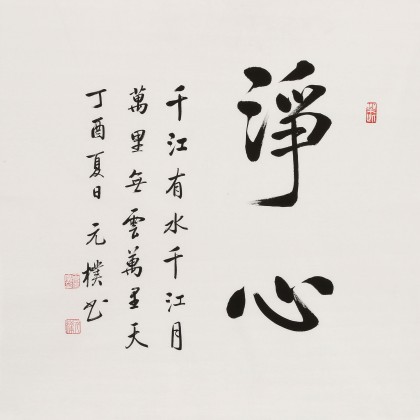 淨心
千江有水千江月
萬里無雲萬里天
丁酉夏日元樸书